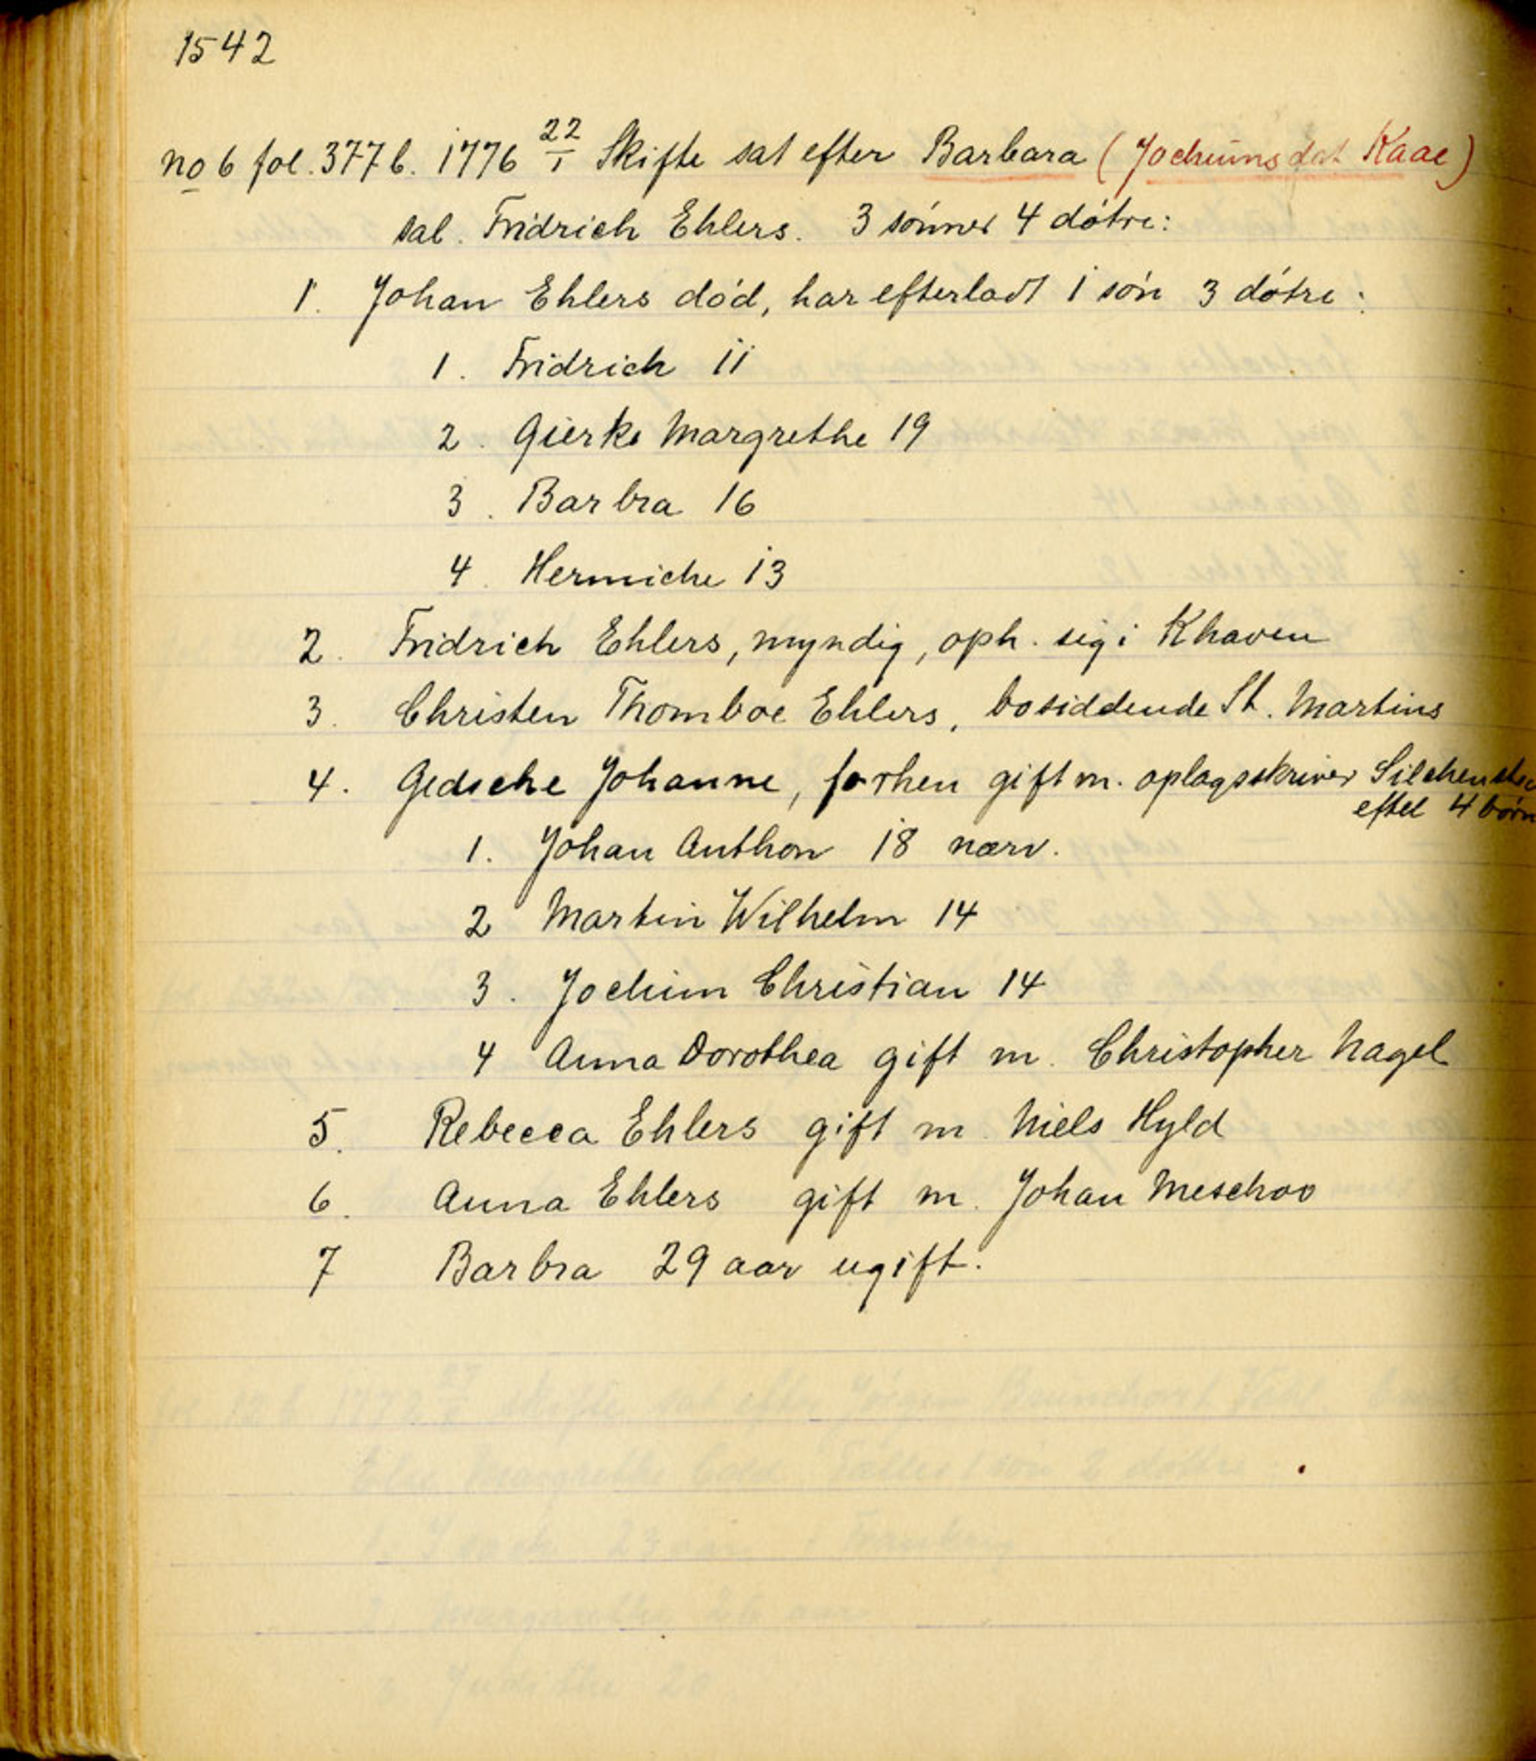 1542
no 6 fol. 377 b. 1776 22/1 Skifte sat efter Barbara (Jochumsdat Kaae)
sal. Fridrich Ehlers. 3 sønner 4 døtre:
1. Johan Ehlers død, har efterladt 1 søn 3 døtre:
1. Fridrich 11
2. Gierke Margrethe 19
3. Barbra 16
4. Hermiche 13
2. Fridrich Ehlers, myndig, oph. sig i Khaven
3. Christen Thomboe Ehlers, bosiddende St. Martins
4. Gedsche Johanne, forhen gift m. oplagsskriver
eftel 4 børn
1. Johan Anthon 18 nærv.
2 Martin Wilhelm 14
3. Jochim Christian 14
4 Anna Dorothea gift m. Christopher Nagel
5. Rebecca Ehlers gift m. Niels Hyld
6. Anna Ehlers gift m. Johan Meschoo
7 Barbra 29 aar ugift.